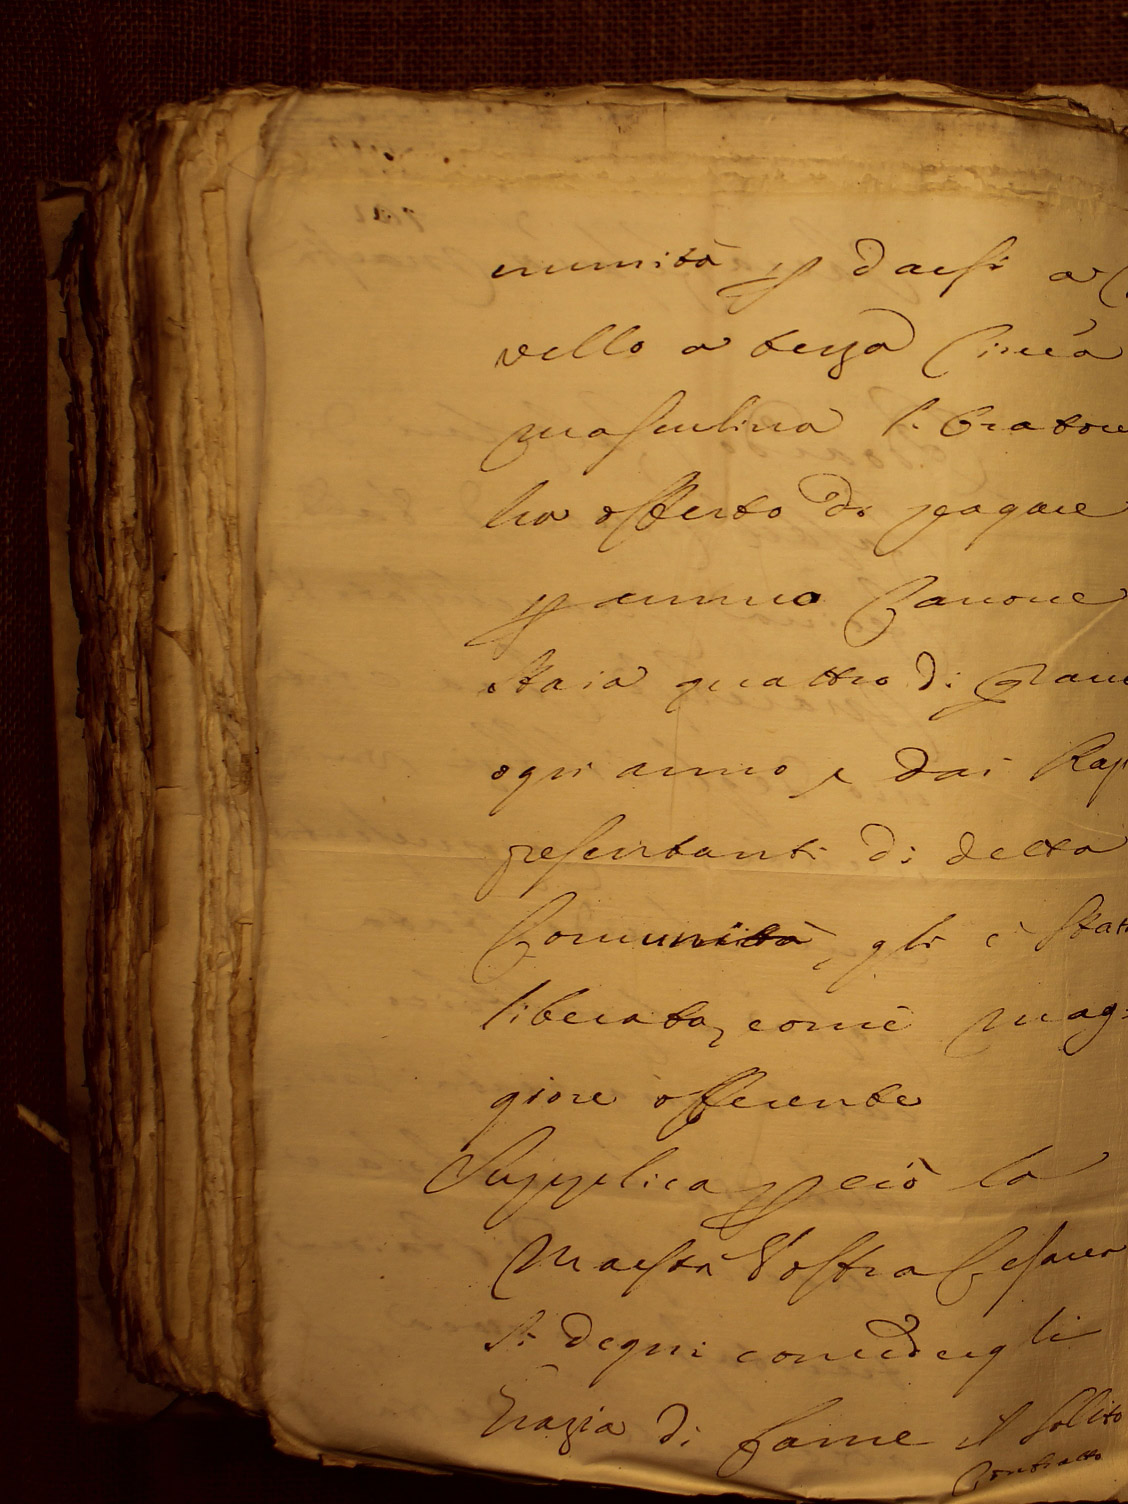 munità p darsi a
vello a terza Linea
masculina l'Oratore
ha offerto di pagare
p annuo Canone
staia quattro di Gran
ogni anno e dai Rap
presentanti di detta
Comunità, gli è stat
liberato, come mag:
giore offerente
Supplica p ciò la
Maestà Vostra Cesarea
si degni concedergli
Grazia di farne il solito
Contratto